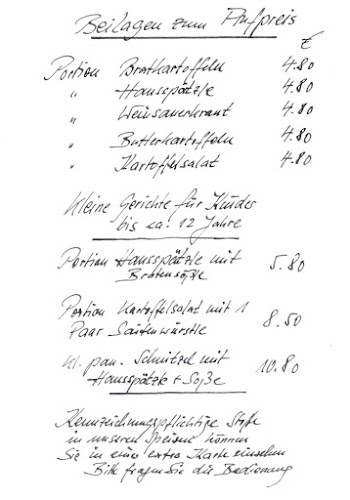 Beilagen zum Aufpreis
€
Portion Bratkartoffeln 4.80
" Hausspätzle 4.80
" Weinsauerkraut 4.80
" Butterkartoffeln 4.80
" Kartoffelsalat 4.80
Kleine Gerichte für Kinder
bis ca. 12 Jahre
Portion Hausspätzle mit 5.80
Bratensoße
Portion Kartoffelsalat mit 1
Paar Saitenwürstle 8.50
Kl. pan. Schnitzel mit 10.80
Hausspätzle + Soße
Kennzeichnungspflichtige Stoffe
in unseren Speisen können
Sie in einer extra Karte einsehen
Bitte fragen Sie die Bedienung